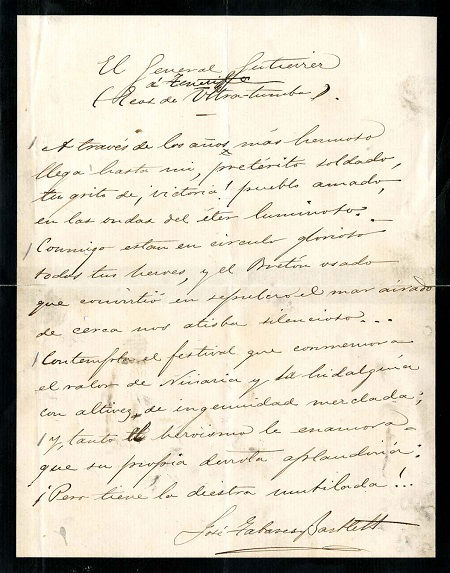 El General Gutierrez
á Tenerife
(Ecos de Ultra-tumba).
A través de los años, más hermoso
llega hasta mi, pretérito soldado,
tu grito de ¡victoria! pueblo amado,
en las ondas del éter luminoso.
Conmigo estan en circulo glorioso
todos tus heroes, y el Breton osado
que convirtió en sepulcro el mar airado
de cerca nos atisba silencioso...
Contempla el festival que conmemora
el valor de Nivaria y la hidalguía
con altivez de ingenuidad mezclada;
y, tanto el heroismo le enamora
que su propia derrota aplaudiria:
¡Pero tiene la diestra mutilada!...
José Tabares Bartlett